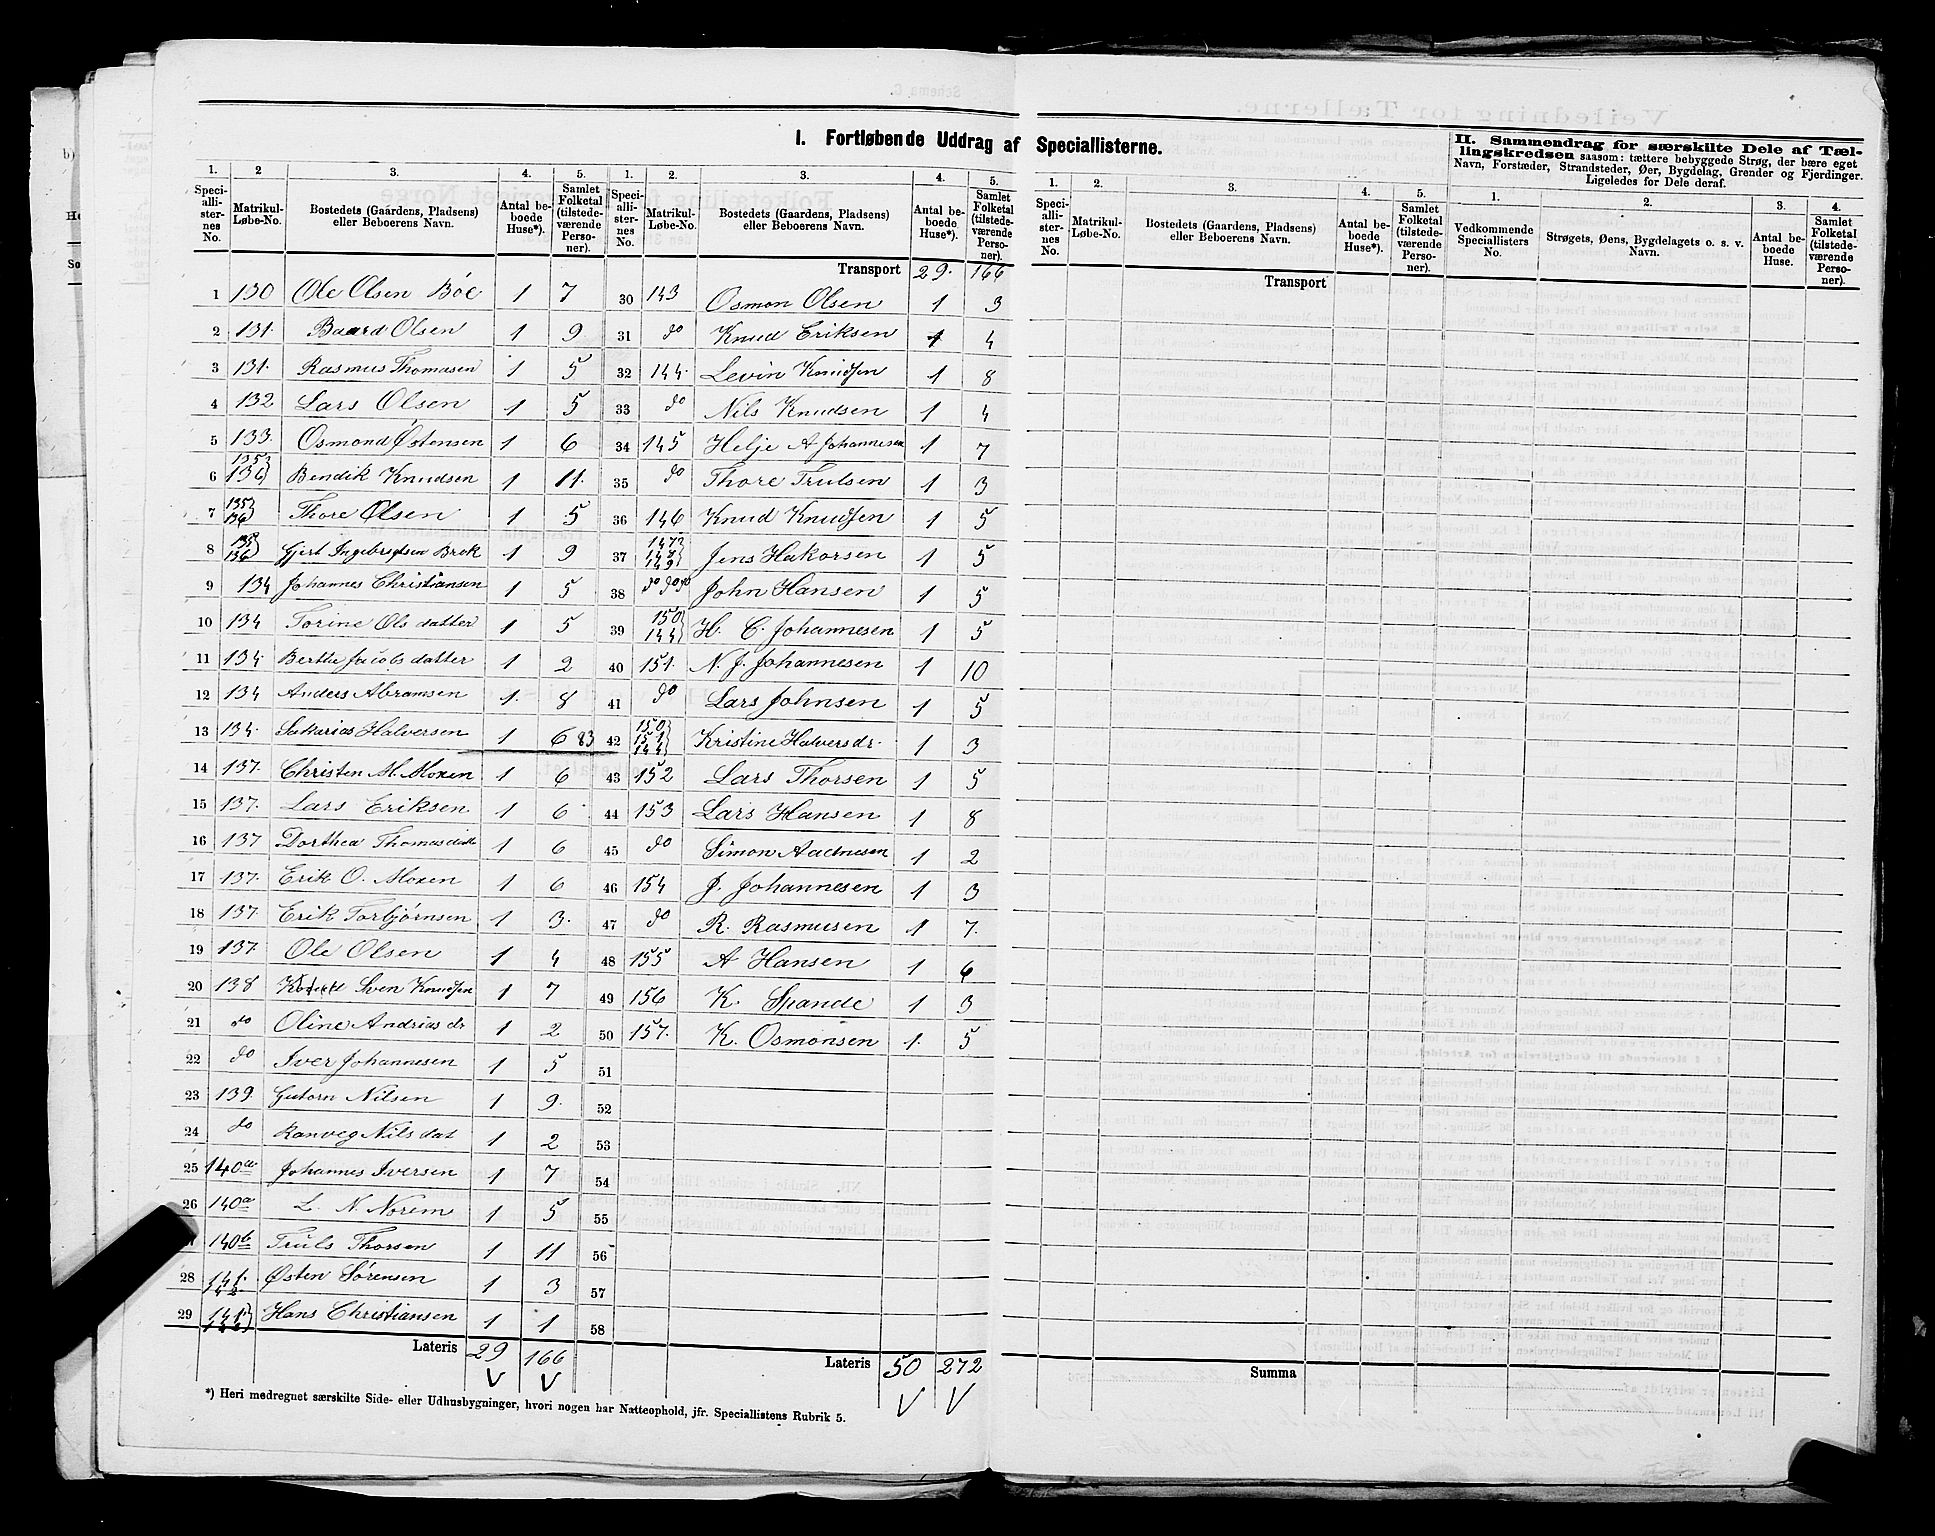 I. Fortløbende Uddrag af Speciallisterne.
II. Sammendrag for særskilte Dele af Tællingskredsen saasom: tættere bebyggede Strøg, der bære eget Navn, Forstæder, Strandsteder, Øer, Bygdelag, Grender og Fjerdinger. Ligeledes for Dele deraf.
1. 2 3. 4. 5.
Speciallisternes No. Matrikul-Løbe-No. Bostedets (Gaardens, Pladsens) eller Beboerens Navn. Antal beboede Huse*). Samlet Folketal (tilstedeværende Personer).
1 130 Ole Olsen Böe 1 7
2 131. Baard Olsen 1 9
3 131. Rasmus Thomasen 1 5
4 132 Lars Olsen 1 5
5 133. Osmond Østensen 1 6
6 135 136 Bendik Knudsen 1 11.
7 135 136 Thore Olsen 1 5
8 135 136 Gjert Ingebrigtsen Brek 1 9
9 134 Johannes Christiansen 1 5
10 134 Torine Ols datter 1 5
11 134. Berthe Jacobs datter 1 2
12 134 Anders Abramsen 1. 8
13 134. Sakarias Halversen 1 6 83
14 137. Christen M. Moxen 1 6
15 137. Lars Eriksen 1 6
16 137 Dorthea Thomasdatt 1 6
17 137. Erik O. Moxen 1 6
18 137. Erik Torbjørnsen 1 3.
19 137. Ole Olsen 1 4
20 138 Sven Knudsen 1 7
21 do Oline Andrias dr 1 2
22 do Iver Johannesen 1 5
23 139. Gutorn Nilsen 1 9.
24 do Ranveg Nils dat 1 2
25 140a Johannes Iversen 1 7
26 140a L. N. Norem 1 5
140b Truls Thorsen 1 11
28 141. 142. Østen Sørensen 1 3
29 141 142 Hans Christiansen 1 1
Lateris 29 166
V V
1. 2. 3. 4. 5.
Speciallisternes No. Matrikul-Løbe-No. Bostedets (Gaardens, Pladsens) eller Beboerens Navn. Antal beboede Huse*). Samlet Folketal (tilstedeværende Personer).
Transport 29. 166
30 143 Osmon Olsen 1 3
31 do Knud Eriksen 1 4
32 144. Levin Knudsen 1 8
33 do Nils Knudsen 1 4
34 145 Helje A Johannesen 1 7
35 do Thore Trulsen 1 3
36 146 Knud Knudsen 1 5
37 147 148 149 Jens Hakorsen 1 5
38 do do do John Hansen 1 5
39 150 144 H. C. Johannesen 1 5
40 151. N. J. Johannesen 1 10
41 do Lars Johnsen 1 5
42 150 151 144 Kristine Halversdr. 1 3
43 152 Lars Thorsen 1 5
44 153 Lars Hansen 1 8
45 do Simon Aadnesen 1 2
46 154 J. Johannesen 1 3
47 do R. Rasmusen 1 7.
48 155 A Hansen 1 6
49 156 K. Spande 1 3
50 157. K. Osmonsen 1. 5
51
52
53
54
55
56
57
58
Lateris 50 272
V V
*) Heri medregnet særskilte Side- eller Udhusbygninger, hvori nogen har Natteophold, jfr. Speciallistens Rubrik 5.
1. 2. 3. 4. 5.
Speciallisternes No. Matrikul-Løbe-No. Bostedets (Gaardens, Pladsens) eller Beboerens Navn. Antal beboede Huse*). Samlet Folketal (tilstedeværende Personer).
Transport
Summa
1. 2. 3. 4.
Vedkommende Speciallisters No. Strøgets, Øens, Bygdelagets o. s. v. Navn. Antal beboede Huse. Samlet Folketal (tilstedeværende Personer).